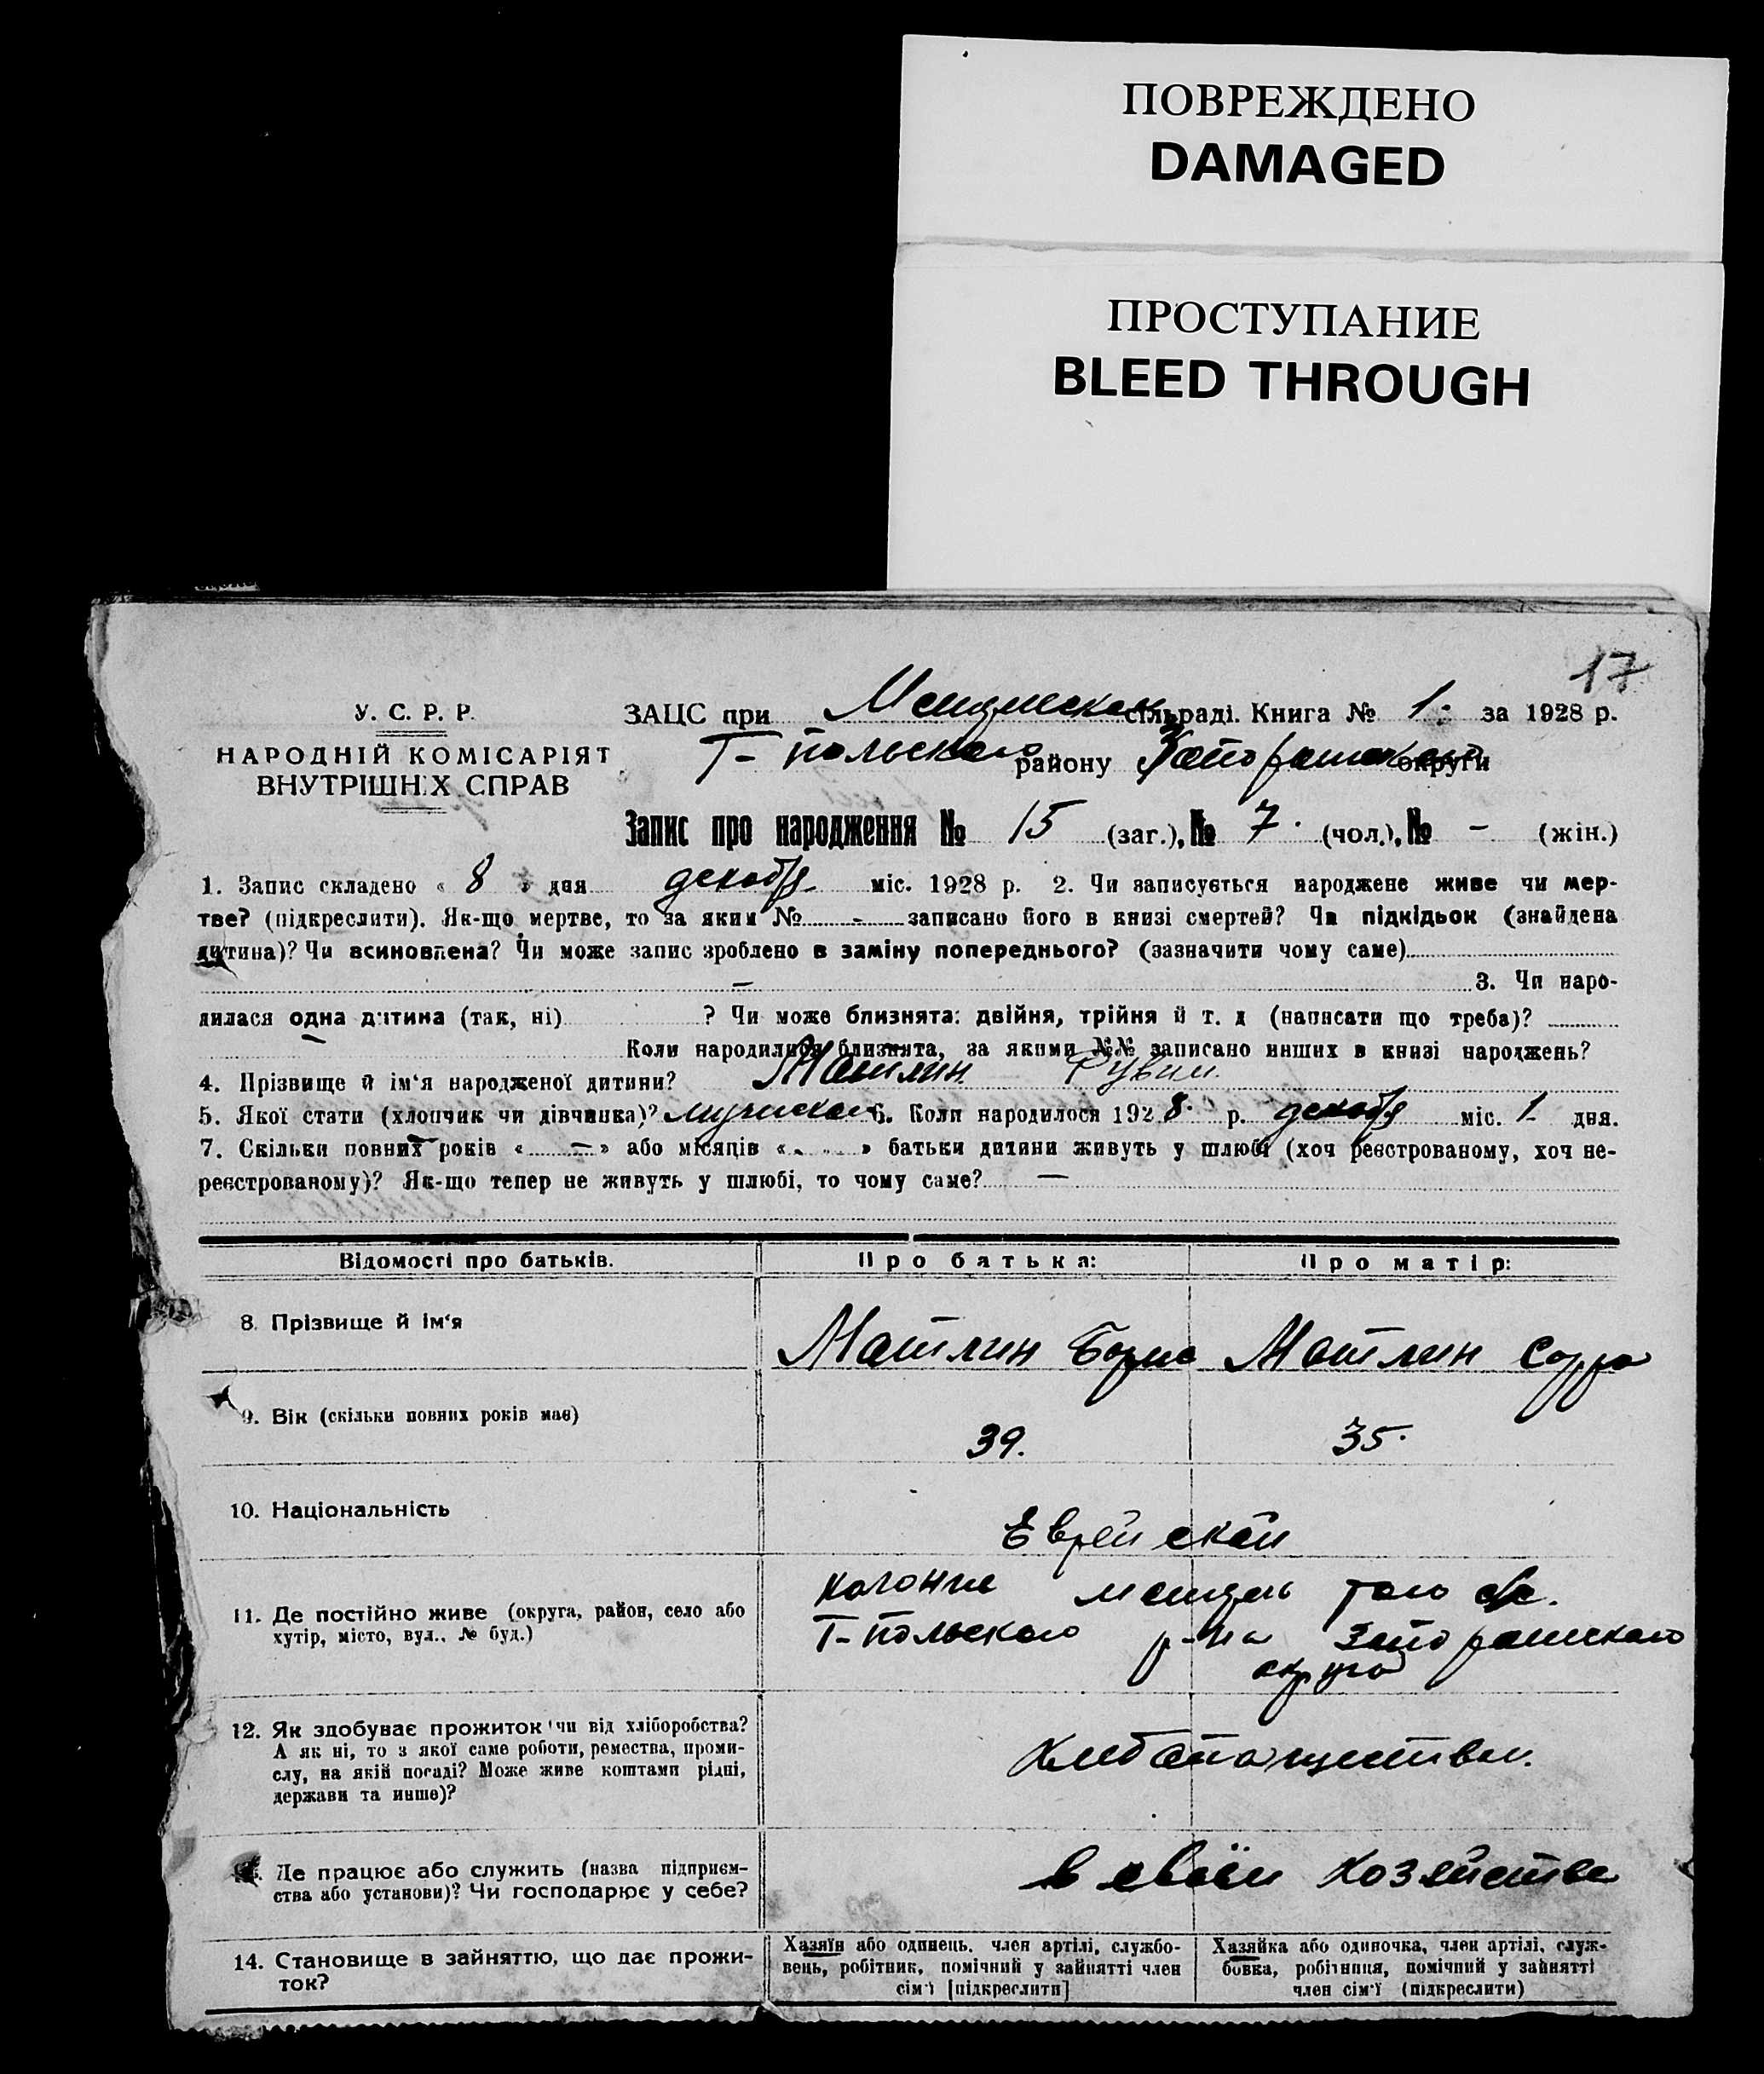 ПОВРЕЖДЕНО
DAMAGED
ПРОСТУПАНИЕ
BLEED THROUGH
17
У. С. Р. Р.
НАРОДНІЙ КОМІСАРІЯТ
ВНУТРІШНІХ СПРАВ
ЗАЦС при сільраді. Книга № 1. за 1928 р.
Т-польского району Запорожского округи
Запис про народження № 15 (заг.), № 7. (чол.), № - (жін.)
1. Запис складено « 8 » дня декабря міс. 1928 р. 2. Чи записується народжене живе чи мер-
тве? (підкреслити). Як-що мертве, то за яким № - записано його в книзі смертей? Чи підкідьок (знайдена
дитина)? Чи всиновлена? Чи може запис зроблено в заміну попереднього? (зазначити чому саме)
— 3. Чи наро-
дилася одна дитина (так, ні) ? Чи може близнята: двійня, трійня й т. д (написати що треба)?
Коли народилися близнята, за якими №№ записано инших в книзі народжень?
4. Прізвище й ім'я народженої дитини? Матлин Рувим
5. Якої стати (хлопчик чи дівчинка)? мужской 6. Коли народилося 1928. р. декабря міс. 1 дня.
7. Скільки повних років « — » або місяців « » батьки дитини живуть у шлюбі (хоч реєстрованому, хоч не-
реєстрованому)? Як-що тепер не живуть у шлюбі, то чому саме? —
Відомості про батьків. Про батька: Про матір:
8. Прізвище й ім'я Матлин Борис Матлин Сорра
9. Вік (скільки повних років має) 39. 35.
10. Національність Еврейской
11. Де постійно живе (округа, район, село або
хутір, місто, вул., № буд.)
колония того с/с.
Т-польского р-на Запорожского
округа
12. Як здобуває прожиток (чи від хліборобства?
А як ні, то з якої саме роботи, ремества, проми-
слу, на якій посаді? Може живе коштами рідні,
держави та инше)?
Хлебопашеством.
Де працює або служить (назва підприєм-
ства або установи)? Чи господарює у себе?
в своём хозяйстве
14. Становище в зайняттю, що дає прожи-
ток?
Хазяїн або одинець, член артілі, службо-
вець, робітник, помічний у зайнятті член
сім'ї [підкреслити]
Хазяйка або одиночка, член артілі, служ-
бовка, робітниця, помічний у зайнятті
член сім'ї (підкреслити)